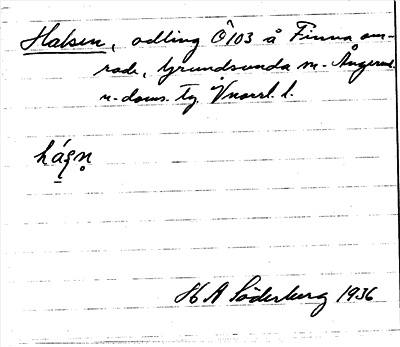 Halsen, odling Ö103 å Finna om-
råde, Grundsunda sn. Ångerml.
n. doms. tg. Vnorrl. l.
H A Söderberg 1936